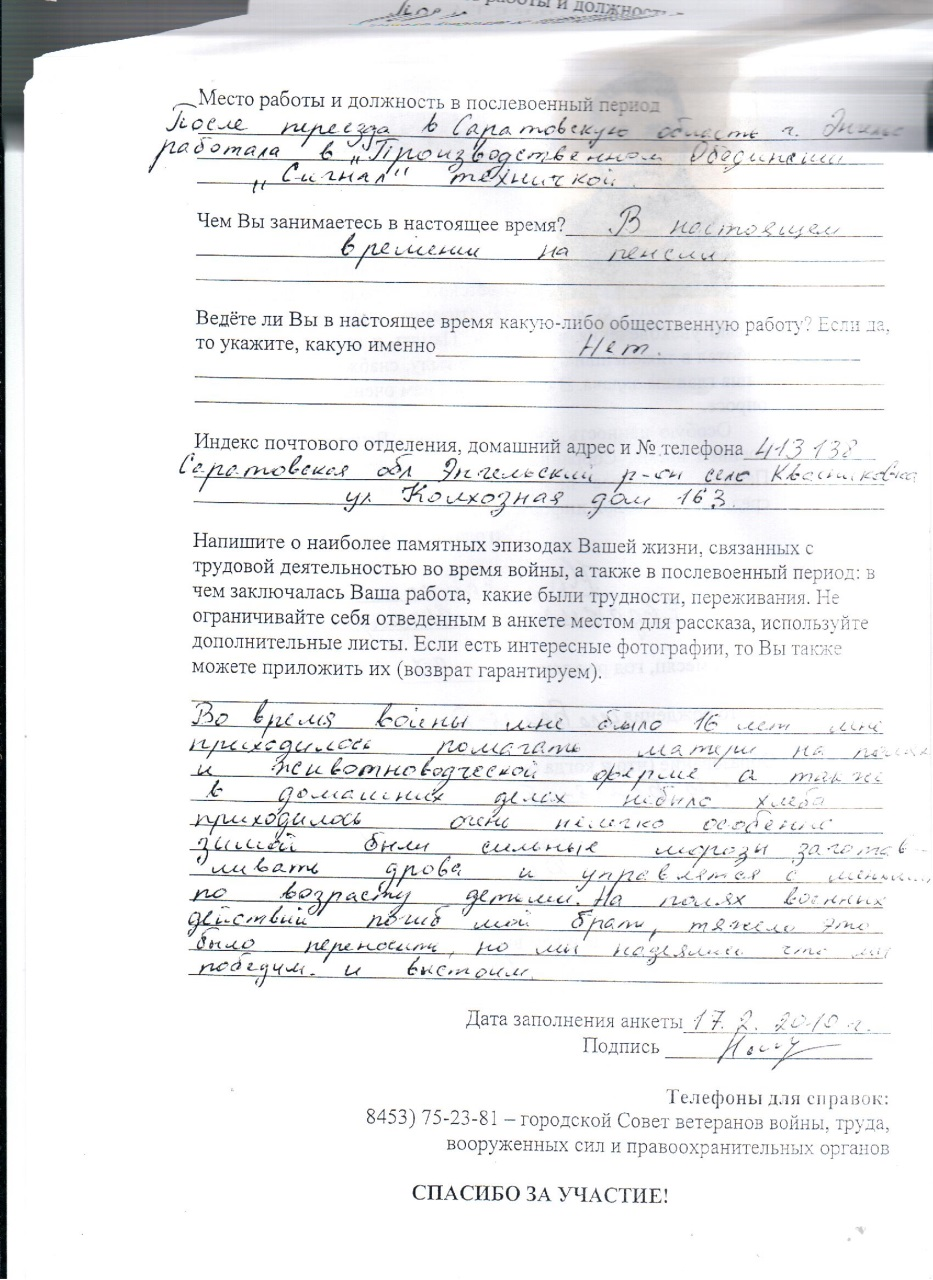 работы и должность
Место работы и должность в послевоенный период
После переезда в Саратовскую область г. Энгельс
работала в „Производственном Обединении
„Сигнал" техничкой.
Чем Вы занимаетесь в настоящее время? В настоящем
времении на пенсии.
Ведёте ли Вы в настоящее время какую-либо общественную работу? Если да,
то укажите, какую именно Нет.
Индекс почтового отделения, домашний адрес и № телефона 413138
Саратовская обл Энгельский р-он село Квасниковка
ул Колхозная дом 163.
Напишите о наиболее памятных эпизодах Вашей жизни, связанных с
трудовой деятельностью во время войны, а также в послевоенный период: в
чем заключалась Ваша работа, какие были трудности, переживания. Не
ограничивайте себя отведенным в анкете местом для рассказа, используйте
дополнительные листы. Если есть интересные фотографии, то Вы также
можете приложить их (возврат гарантируем).
Во время войны мне было 16 лет мне
приходилось помагать матери на полях
и животноводческой ферме а так же
в домашних делах небыло хлеба
приходилось очень нелегко особенно
зимой были сильные морозы заготав-
ливать дрова и управлятся с меншими
по возрасту детьми. На полях военных
действий погиб мой брат, тяжело это
было переносить, но мы надеялись что мы
победим. и выстоим.
Дата заполнения анкеты 17. 2. 2010 г.
Подпись
Телефоны для справок:
8453) 75-23-81 – городской Совет ветеранов войны, труда,
вооруженных сил и правоохранительных органов
СПАСИБО ЗА УЧАСТИЕ!